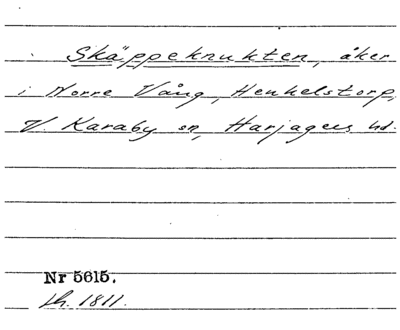 Skäppekrukten, åker
i Norre Vång, Henkelstorp,
V. Karaby sn, Harjagers hd.
Nr 5615.
th. 1811.